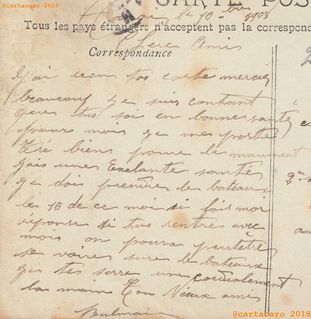 @Cartacaro 2018
CARTE POS
10 bre 1908
Tous les pays étrangers n'acceptent pas la correspond
Cher Amis
Correspondance
j'ai recu ta carte merci
beaucoup je suis contant
que tus soi en bonne santé
pours moi je me porte
tré biens pour le moment
jais une Exelante santé
je dois prendre le bateaux
le 15 de ce moi si fait moi
réponse si tus rentre avec
mois on poura peutetre
se voire sure le bateaux
je tes serre une cordialement
la main Ton Vieux ami
@cartacaro 2018